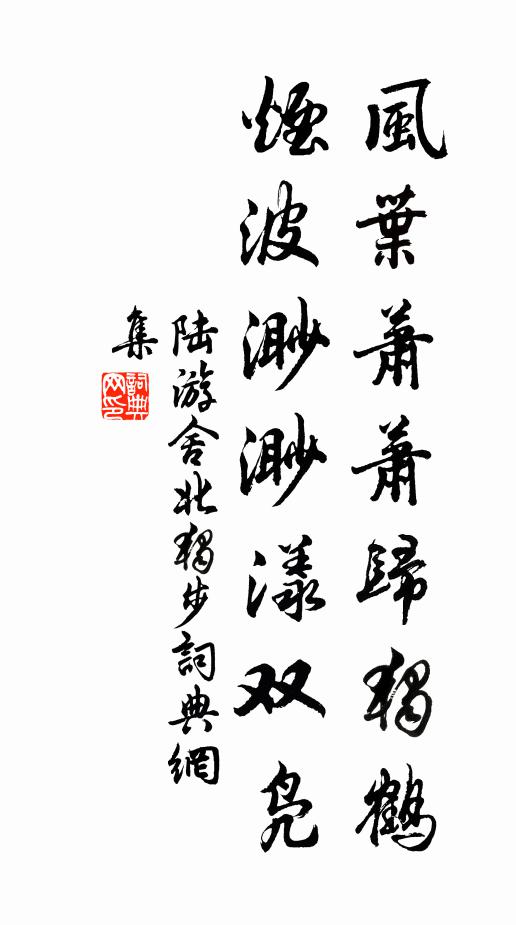 風葉蕭蕭歸獨鶴
煙波渺渺漾双鳧
陆游舍北獨步詞典網
集
詞典
网印